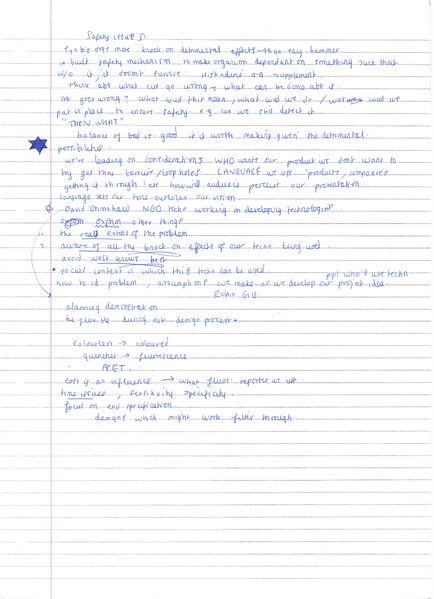 Safety issues.
Synbio orgs more knock on detrimental effects than say hammer.
in built safety mechanism to make organism dependant on something such that
w/o it, it doesnt survive. Histidine a.a supplement.
Think abt what cud go wrong & what can be done abt it.
goes wrong? what wud this mean, what wud we do / wud we
put in place to ensure safety. e.g can we still detect it
"THEN WHAT"
balance of bad vs good is it worth making given the detrimental
possibilities
we're leading on considerations WHO wants our product we dont want to
try get thru barriers/loopholes LANGUAGE we use 'products, companies
getting it through' etc how will audience percieve our presentation
language sets our tone outlines our vision.
David Grimshaw NGO techn working on developing technologies
other things
1. the real extent of the problem
2. aware of all the knock on effects of our techn being used.
avoid west knows best
social context in which this techn can be used. ppl who'll use techn
how to id problem, assumptions we make as we develop our project idea.
Robin G
planning demonstration
be flexible during our design process.
colourless → coloured
quencher → fluorescence
FRET.
cost is an influence → what fluor reporter we use
time issues, sensitivity specificity.
focus on end specification
designs which might work filter through